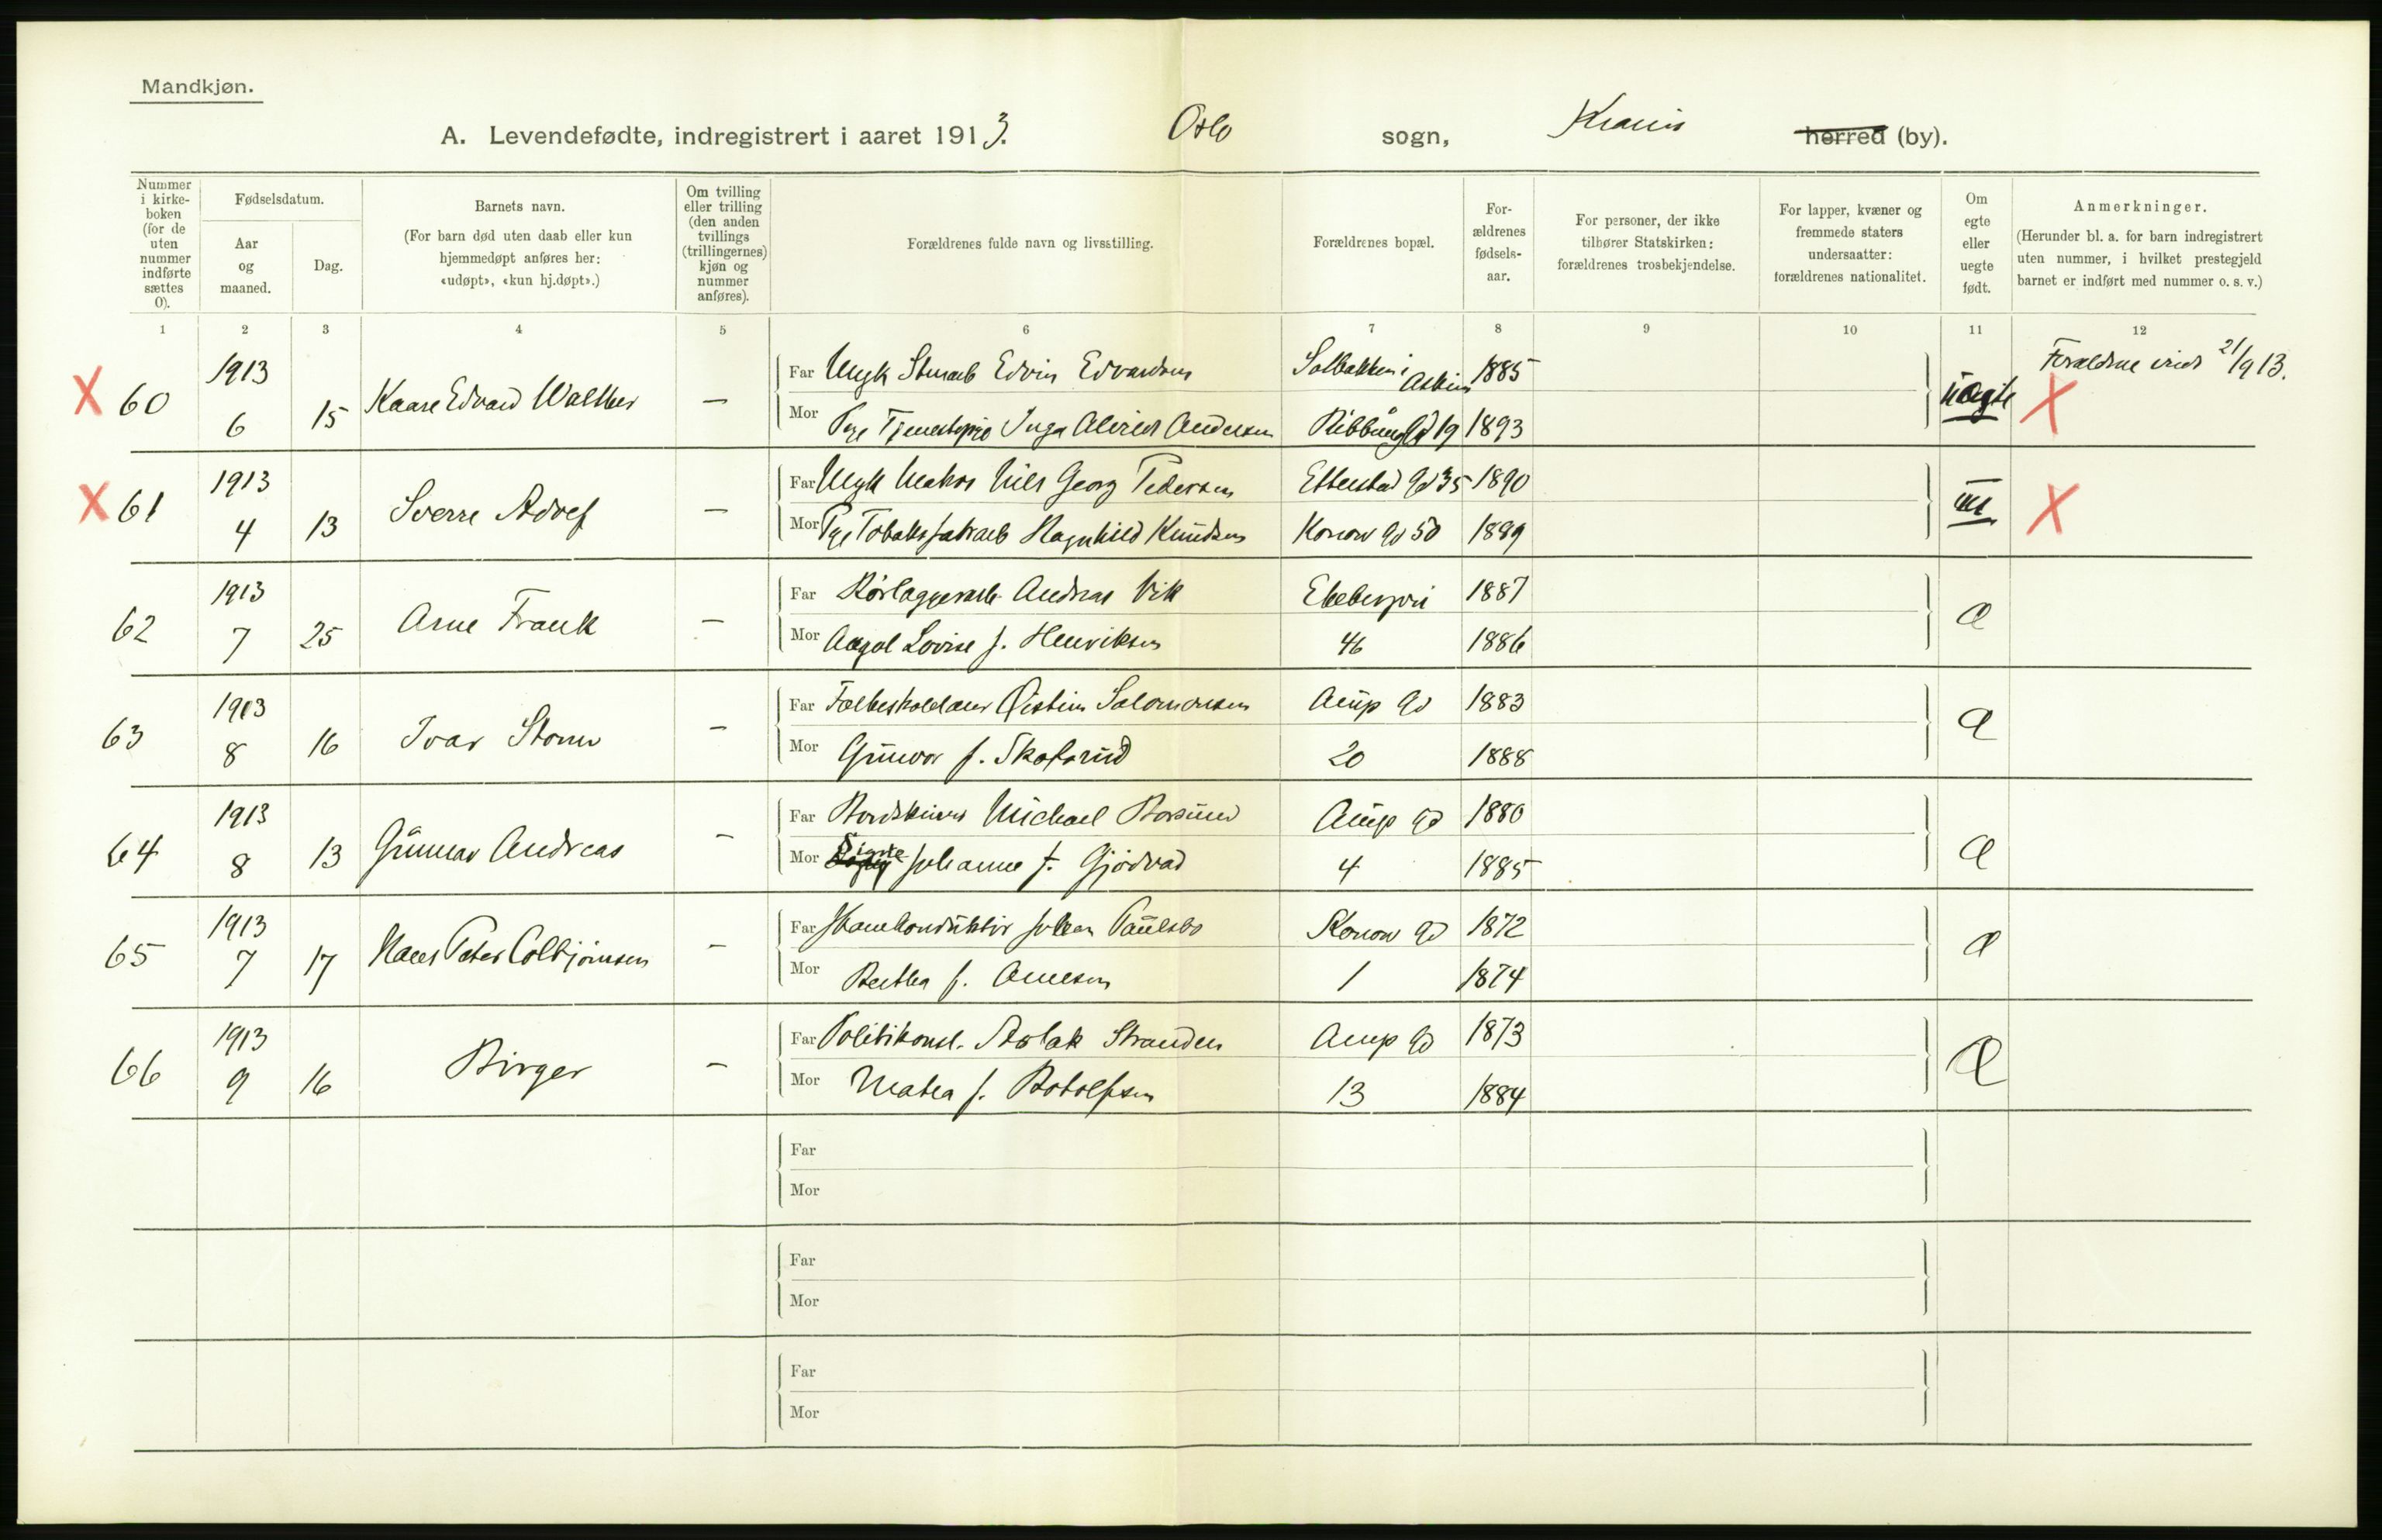 Mandkjøn.
A. Levendefødte, indregistrert i aaret 1913. Oslo sogn, Krania herred (by).
Nummer i kirke-boken (for de uten nummer indførte sættes 0).
Fødselsdatum.
Aar og maaned.
Dag.
Barnets navn.
(For barn død uten daab eller kun hjemmedøpt anføres her: «udøpt», «kun hj.døpt».)
Om tvilling eller trilling (den anden tvillings (trillingernes) kjøn og nummer anføres).
Forældrenes fulde navn og livsstilling.
Forældrenes bopæl.
For-ældrenes fødsels-aar.
For personer, der ikke tilhører Statskirken: forældrenes trosbekjendelse.
For lapper, kvæner og fremmede staters undersaatter: forældrenes nationalitet.
Om egte eller uegte født.
Anmerkninger.
(Herunder bl. a. for barn indregistrert uten nummer, i hvilket prestegjeld barnet er indført med nummer o. s. v.)
1 2 3 4 5 6 7 8 9 10 11 12
X 60 1913 6 15 Kaare Edvard Walther —
Far Ungk Edvin Edvardsen Solbakken i Askim 1885
Mor Pge Tjenestepie Inga Alvine Andersen Ribbung Gd 19 1893
uægte Forældrene viet 21/9 13. X
X 61 1913 4 13 Sverre Adolf —
Far Ungk Matros Nils Georg Pedersen Etterstad Gd 35 1890
Mor Pge Tobaksfabrarb Ragnhild Knudsen Konow Gd 50 1889
X
62 1913 7 25 Arne Frank —
Far Rørlæggerarb. Andreas Vik Ekebergvei 1887
Mor Aagot Lovise f. Henriksen 46 1886
Æ
63 1913 8 16 Ivar Storm —
Far Øistein Salomonsen Aurp Gd 1883
Mor Gunvor f. Skaforud 20 1888
Æ
64 1913 8 13 Gunnar Andreas —
Far Bordskjærer Michael Borsund Aurp Gd 1880
Mor Signe Johanne f. Gjødvad 4 1885
Æ
65 1913 7 17 Hans Peter Colbjørnsen —
Far Johan Paulsbo Konow Gd 1872
Mor Berthea f. Arnesen 1 1874
Æ
66 1913 9 16 Birger —
Far Politikonst. Aslak Stranden Aurp Gd 1873
Mor Mathea f. Botolfsen 13 1884
Æ
Far
Mor
Far
Mor
Far
Mor